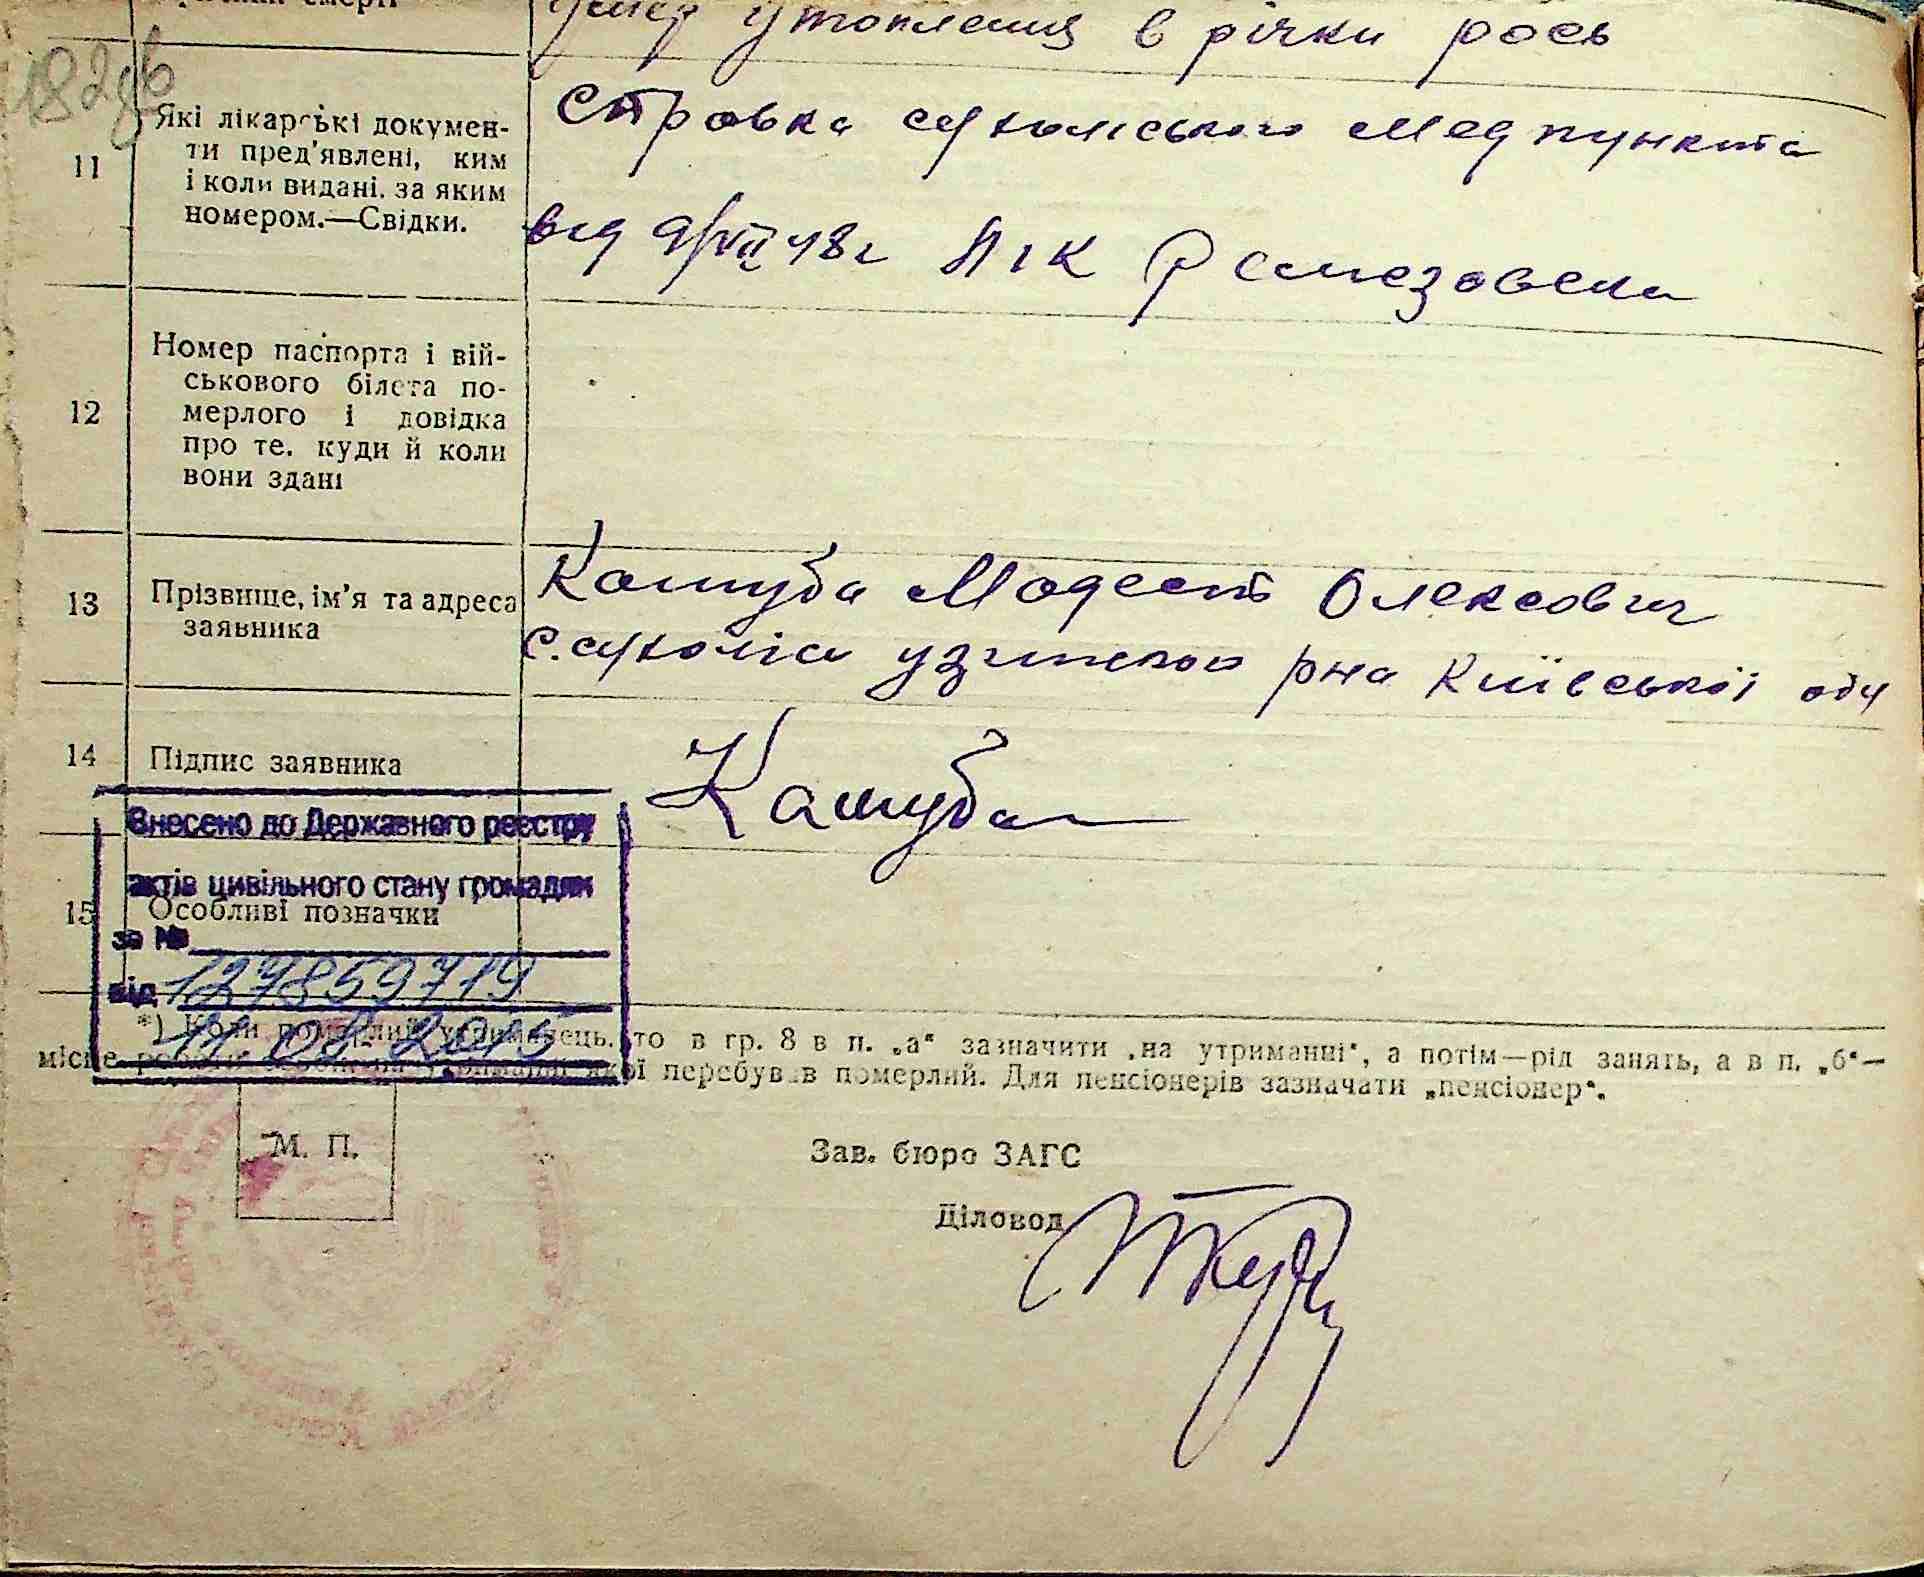 смерті
утопления в річки рось
182
11
Які лікарські докумен-
ти пред'явлені, ким
і коли видані. за яким
номером.—Свідки.
Стровка сухоліського медпункта
від 9/VII 48г Лік Ремезовска
12
Номер паспорта і вій-
ськового білета по-
мерлого і довідка
про те. куди й коли
вони здані
13
Прізвище, ім'я та адреса
заявника
Кошуба Модест Олексович
с. сухоліси узинского рна Київської обл
14
Підпис заявника
Кашуба
Внесено до Державного реєстру
актів цивільного стану громадян
15
Особливі позначки
за №
127859719
від
11 08 2015
*) Коли померлий утриманець. то в гр. 8 в п. „а“ зазначити „на утриманні“, а потім—рід занять, а в п. „б“—
місце роботи якої перебував померлий. Для пенсіонерів зазначати „пенсіонер“.
М. П.
Зав. бюро ЗАГС
Діловод